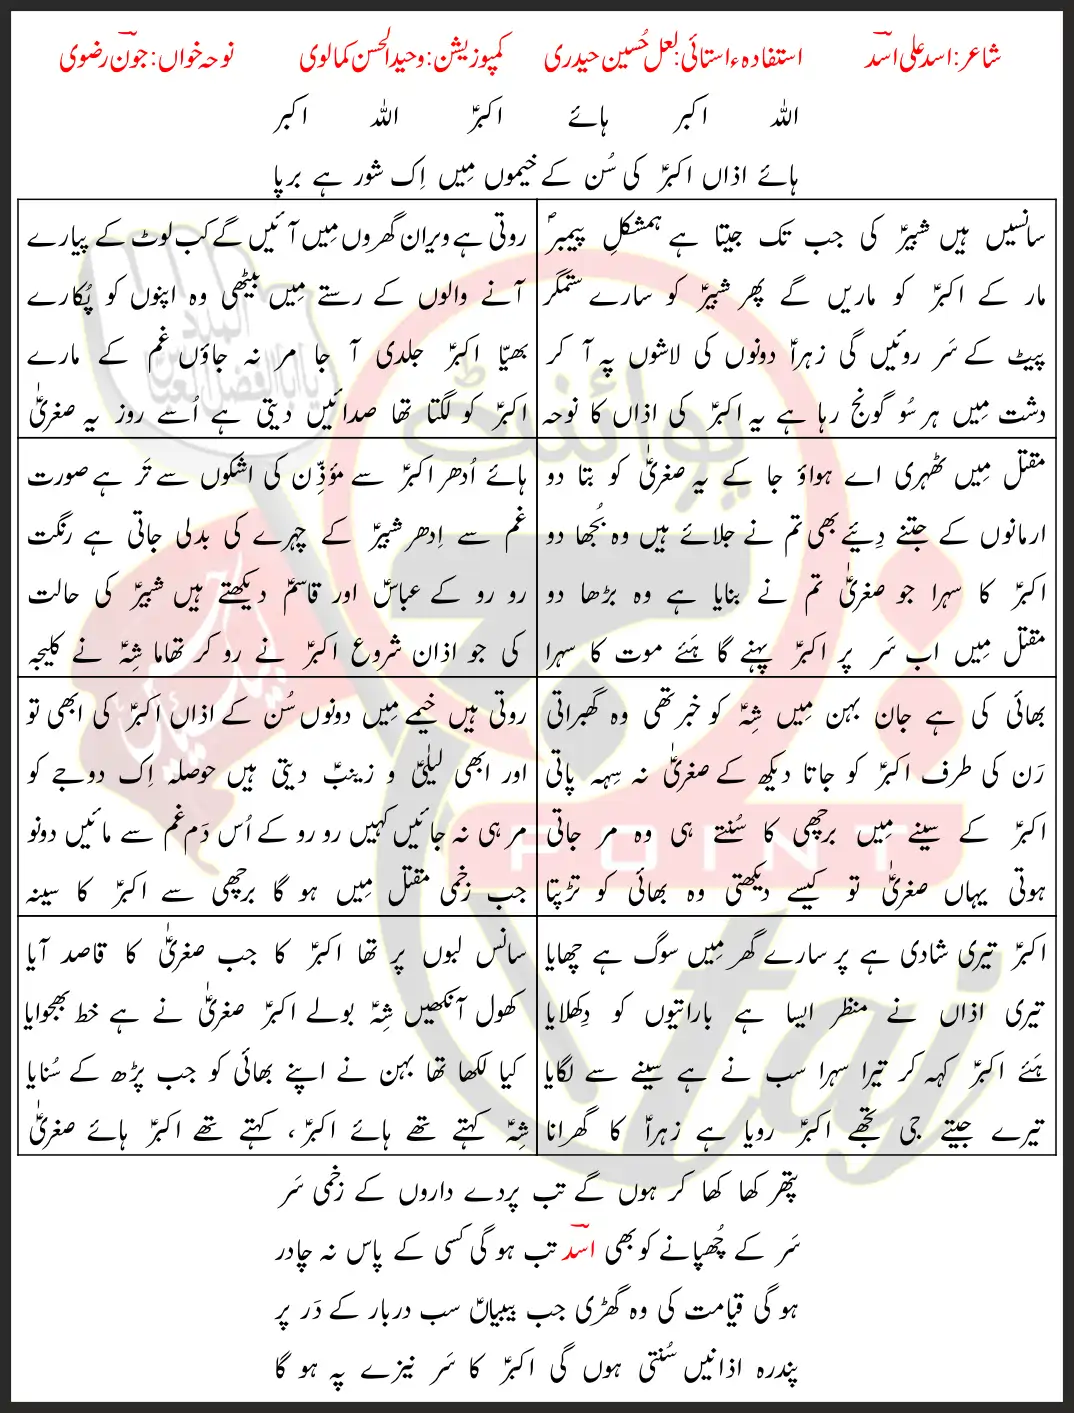 شاعر: اسد علی اسدؔ استفادہء استائی: لعل حُسین حیدری کمپوزیشن: وحید الحسن کمالوی نوحہ خواں: جونؔ رضوی
اللہ اکبر ہائے اکبرؑ اللہ اکبر
ہائے اذاں اکبرؑ کی سُن کے خیموں مِیں اِک شور ہے برپا
سانسیں ہیں شبیرؑ کی جب تک جیتا ہے ہمشکلِ پیمبرؐ
مار کے اکبرؑ کو ماریں گے پھر شبیرؑ کو سارے ستمگر
پیٹ کے سَر روئیں گی زہراؑ دونوں کی لاشوں پہ آ کر
دشت مِیں ہر سُو گونج رہا ہے یہ اکبرؑ کی اذاں کا نوحہ
روتی ہے ویران گھروں مِیں آئیں گے کب لوٹ کے پیارے
آنے والوں کے رستے مِیں بیٹھی وہ اپنوں کو پُکارے
بھیّا اکبرؑ جلدی آ جا مر نہ جاؤں غم کے مارے
اکبرؑ کو لگتا تھا صدائیں دیتی ہے اُسے روز یہ صغریٰؑ
مقتل مِیں ٹھہری اے ہواؤ جا کے یہ صغریٰؑ کو بتا دو
ارمانوں کے جتنے دِیئے بھی تم نے جلائے ہیں وہ بُجھا دو
اکبرؑ کا سہرا جو صغریٰؑ تم نے بنایا ہے وہ بڑھا دو
مقتل مِیں اب سَر پر اکبرؑ پہنے گا ہَئے موت کا سہرا
ہائے اُدھر اکبرؑ سے مؤذِّن کی اشکوں سے تَر ہے صورت
غم سے اِدھر شبیرؑ کے چہرے کی بدلی جاتی ہے رنگت
رو رو کے عباسؑ اور قاسمؑ دیکھتے ہیں شبیرؑ کی حالت
کی جو اذان شروع اکبرؑ نے رو کر تھاما شِہؑ نے کلیجہ
بھائی کی ہے جان بہن مِیں شِہؑ کو خبر تھی وہ گھبراتی
رَن کی طرف اکبرؑ کو جاتا دیکھ کے صغریٰؑ نہ سِہہ پاتی
اکبرؑ کے سینے مِیں برچھی کا سُنتے ہی وہ مر جاتی
ہوتی یہاں صغریٰؑ تو کیسے دیکھتی وہ بھائی کو تڑپتا
روتی ہیں خیمے مِیں دونوں سُن کے اذاں اکبرؑ کی ابھی تو
اور ابھی لیلٰیؑ و زینبؑ دیتی ہیں حوصلہ اِک دوجے کو
مر ہی نہ جائیں کہیں رو رو کے اُس دَم غم سے مائیں دونو
جب زخمی مقتل مِیں ہو گا برچھی سے اکبرؑ کا سینہ
اکبرؑ تیری شادی ہے پر سارے گھر مِیں سوگ ہے چھایا
تیری اذاں نے منظر ایسا ہے باراتیوں کو دِکھلایا
ہَئے اکبرؑ کہہ کر تیرا سہرا سب نے ہے سینے سے لگایا
تیرے جیتے جی تجھے اکبرؑ رویا ہے زہراؑ کا گھرانا
سانس لبوں پر تھا اکبرؑ کا جب صغریٰؑ کا قاصد آیا
کھول آنکھیں شِہؑ بولے اکبرؑ صغریٰؑ نے ہے خط بھجوایا
کیا لکھا تھا بہن نے اپنے بھائی کو جب پڑھ کے سُنایا
شِہؑ کہتے تھے ہائے اکبرؑ، کہتے تھے اکبرؑ ہائے صغریٰؑ
پتھر کھا کھا کر ہوں گے تب پردے داروں کے زخمی سَر
سَر کے چُھپانے کو بھی اسدؔ تب ہو گی کسی کے پاس نہ چادر
ہو گی قیامت کی وہ گھڑی جب بیبیاںؑ سب دربار کے دَر پر
پندرہ اذانیں سُنتی ہوں گی اکبرؑ کا سَر نیزے پہ ہو گا
پوائنٹ
POINT
taj